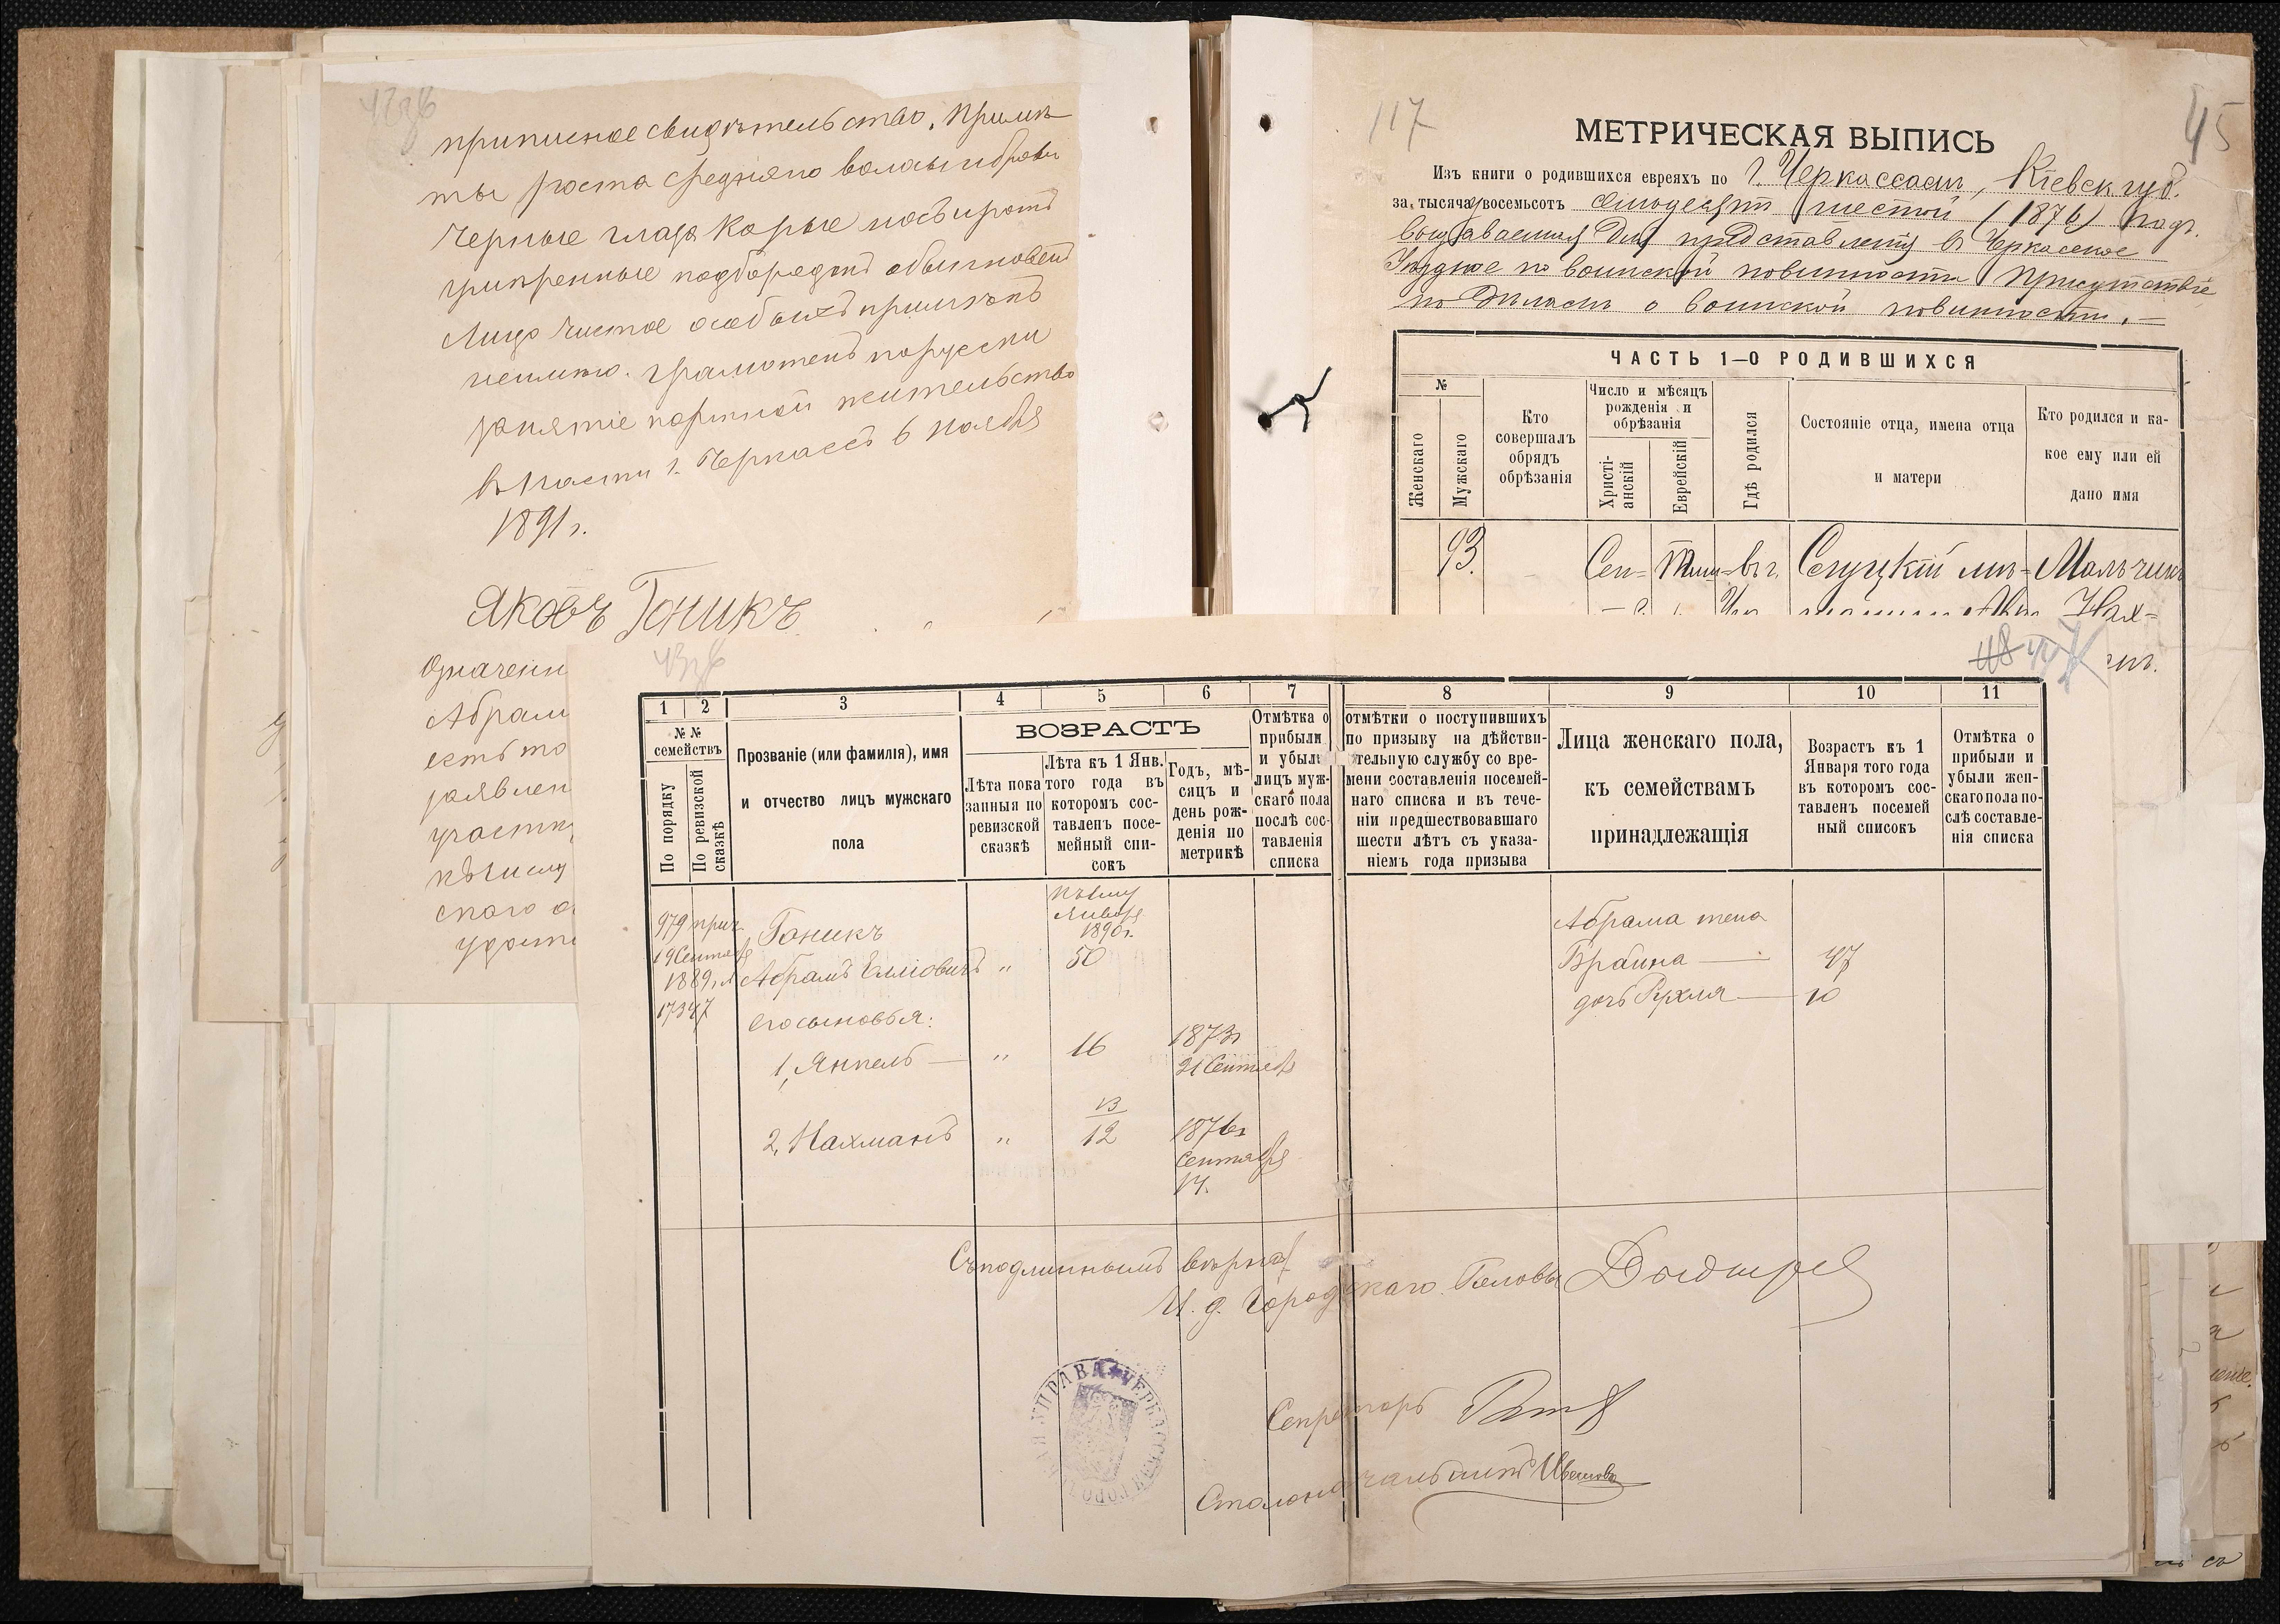 приписное свидѣтельство, примѣ
ты роста средняго волосы и брови
черные глаза карые носъ и ротъ
умѣренные подбородокъ обыкновен
Лицо чистое особыхъ примѣтъ
неимѣю. грамотенъ порусски
занятіе портной жительство
въ 1 части г. Черкассъ 6 Ноября
1891 г.
Яковъ Гоникъ
Означенн
Абрам
есть то
заявлен
участк
къ числу
скаго о
117
45
МЕТРИЧЕСКАЯ ВЫПИСЬ
Изъ книги о родившихся евреяхъ по г. Черкассамъ, Кіевск. губ.
за тысяча восемьсотъ семьдесятъ шестой (1876) годъ.
выдаваемая для представленія въ Черкасское
Уѣздное по воинской повинности Присутствіе
по дѣламъ о воинской повинности. —
ЧАСТЬ 1—О РОДИВШИХСЯ
№
Женскаго
Мужскаго
Кто совершалъ обрядъ обрѣзанія
Число и мѣсяцъ рожденія и обрѣзанія
Христіанскій
Еврейскій
Гдѣ родился
Состояніе отца, имена отца и матери
Кто родился и какое ему или ей дано имя
93.
Сен=
Тиш=
въ г.
Слуцкій мѣ=
Мальчикъ
Нах=
1 2 3 4 5 6 7 8 9 10 11
№ № семействъ
По порядку
По ревизской сказкѣ
Прозваніе (или фамилія), имя
и отчество лицъ мужскаго
пола
ВОЗРАСТЪ
Лѣта показанныя по ревизской сказкѣ
Лѣта къ 1 Янв. того года въ которомъ составленъ посемейный списокъ
Годъ, мѣсяцъ и день рожденія по метрикѣ
Отмѣтка о прибыли и убыли лицъ мужскаго пола послѣ составленія списка
отмѣтки о поступившихъ по призыву на дѣйствительную службу со времени составленія посемейнаго списка и въ теченіи предшествовавшаго шести лѣтъ съ указаніемъ года призыва
Лица женскаго пола,
къ семействамъ
принадлежащія
Возрастъ къ 1 Января того года въ которомъ составленъ посемейный списокъ
Отмѣтка о прибыли и убыли женскаго пола послѣ составленія списка
къ 1му
Января
1890 г.
979 прич.
19 Сентября
1889 г. №
17347
Гоникъ
Абрамъ Елліовичъ " 50
его сыновья:
1, Янкель — " 16 1873 г
21 Сентября
13
2, Нахманъ " 12 1876 г
Сентября
14.
Абрама жена
Браина — 47
дочь Рухля — 10
Съ подлиннымъ вѣрно:
И. д. Городскаго Головы
Секретарь
Столоначальникъ Ивановъ
УПРАВА ★ ЧЕРКАССКАЯ ГОРОД